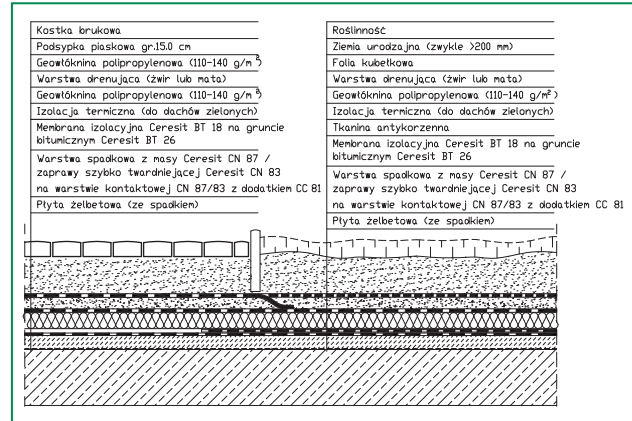 Kostka brukowa
Podsypka piaskowa gr.15.0 cm
Geowłóknina polipropylenowa (110-140 g/m²)
Warstwa drenująca (żwir lub mata)
Geowłóknina polipropylenowa (110-140 g/m²)
Izolacja termiczna (do dachów zielonych)
Membrana izolacyjna Ceresit BT 18 na gruncie
bitumicznym Ceresit BT 26
Warstwa spadkowa z masy Ceresit CN 87 /
zaprawy szybko twardniejącej Ceresit CN 83
na warstwie kontaktowej CN 87/83 z dodatkiem CC 81
Płyta żelbetowa (ze spadkiem)
Roślinność
Ziemia urodzajna (zwykle >200 mm)
Folia kubełkowa
Warstwa drenująca (żwir lub mata)
Geowłóknina polipropylenowa (110-140 g/m²)
Izolacja termiczna (do dachów zielonych)
Tkanina antykorzenna
Membrana izolacyjna Ceresit BT 18 na gruncie
bitumicznym Ceresit BT 26
Warstwa spadkowa z masy Ceresit CN 87 /
zaprawy szybko twardniejącej Ceresit CN 83
na warstwie kontaktowej CN 87/83 z dodatkiem CC 81
Płyta żelbetowa (ze spadkiem)